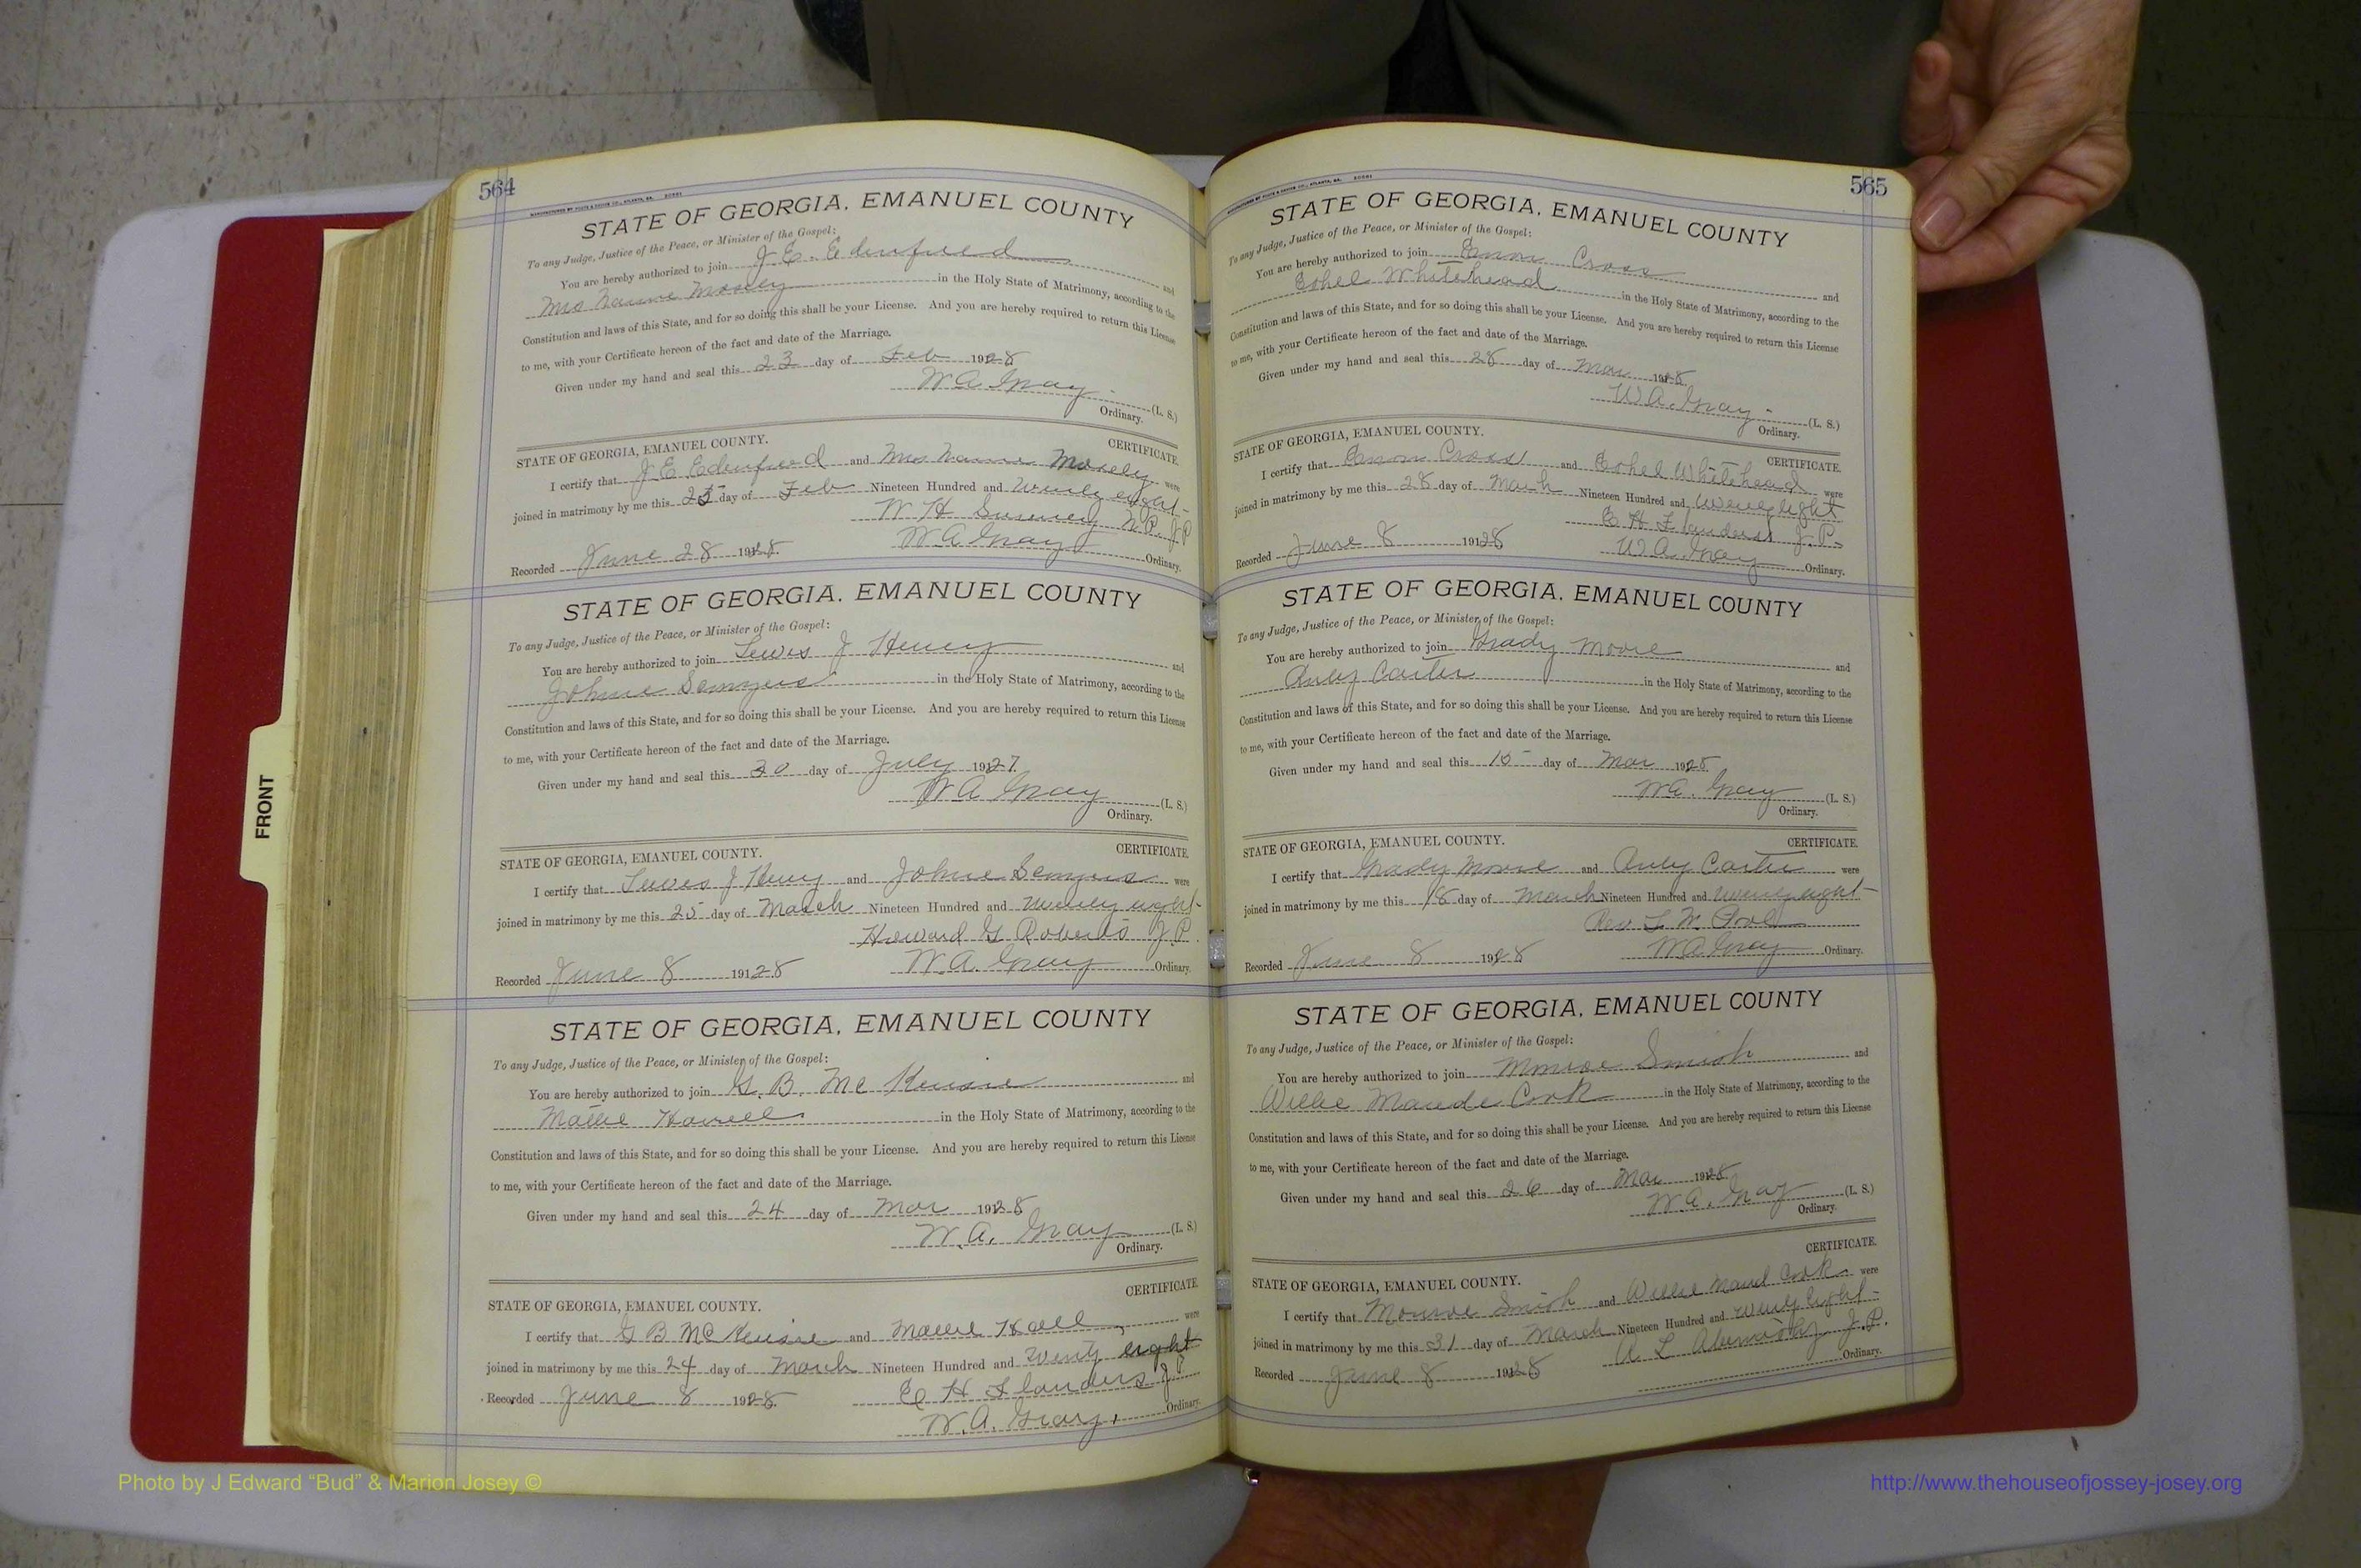 564
STATE OF GEORGIA, EMANUEL COUNTY
To any Judge, Justice of the Peace, or Minister of the Gospel:
You are hereby authorized to join J. E. Edenfield and
Mrs Mosely in the Holy State of Matrimony, according to the
Constitution and laws of this State, and for so doing this shall be your License. And you are hereby required to return this License
to me, with your Certificate hereon of the fact and date of the Marriage.
Given under my hand and seal this 23 day of Feb 1928
W. A. Gray (L. S.)
Ordinary.
STATE OF GEORGIA, EMANUEL COUNTY. CERTIFICATE.
I certify that J E Edenfield and Mrs Mosely were
joined in matrimony by me this 25 day of Feb Nineteen Hundred and Twenty eight
W H N.P. J P
Recorded June 28 1928 W. A. Gray Ordinary.
STATE OF GEORGIA, EMANUEL COUNTY
To any Judge, Justice of the Peace, or Minister of the Gospel:
You are hereby authorized to join Lewis J Henry and
Johnie in the Holy State of Matrimony, according to the
Constitution and laws of this State, and for so doing this shall be your License. And you are hereby required to return this License
to me, with your Certificate hereon of the fact and date of the Marriage.
Given under my hand and seal this 30 day of July 1927
W A Gray (L. S.)
Ordinary.
STATE OF GEORGIA, EMANUEL COUNTY. CERTIFICATE.
I certify that Lewis J Henry and Johnie were
joined in matrimony by me this 25 day of March Nineteen Hundred and Twenty eight
Howard G Roberts J. P.
Recorded June 8 1928 W. A. Gray Ordinary.
STATE OF GEORGIA, EMANUEL COUNTY
To any Judge, Justice of the Peace, or Minister of the Gospel:
You are hereby authorized to join G. B. McKensie and
Mattie in the Holy State of Matrimony, according to the
Constitution and laws of this State, and for so doing this shall be your License. And you are hereby required to return this License
to me, with your Certificate hereon of the fact and date of the Marriage.
Given under my hand and seal this 24 day of Mar 1928
W. A. Gray (L. S.)
Ordinary.
CERTIFICATE
STATE OF GEORGIA, EMANUEL COUNTY.
I certify that G B McKensie and were
joined in matrimony by me this 24 day of March Nineteen Hundred and Twenty eight
E H Flanders J P
Recorded June 8 1928
W. A. Gray, Ordinary.
565
STATE OF GEORGIA, EMANUEL COUNTY
To any Judge, Justice of the Peace, or Minister of the Gospel:
You are hereby authorized to join Cross and
Ethel Whitehead in the Holy State of Matrimony, according to the
Constitution and laws of this State, and for so doing this shall be your License. And you are hereby required to return this License
to me, with your Certificate hereon of the fact and date of the Marriage.
Given under my hand and seal this 28 day of Mar 1928
W. A. Gray (L. S.)
Ordinary.
STATE OF GEORGIA, EMANUEL COUNTY. CERTIFICATE.
I certify that Cross and Ethel Whitehead were
joined in matrimony by me this 28 day of March Nineteen Hundred and twenty eight
E H Flanders J. P.
Recorded June 8 1928 W. A. Gray Ordinary.
STATE OF GEORGIA, EMANUEL COUNTY
To any Judge, Justice of the Peace, or Minister of the Gospel:
You are hereby authorized to join Grady Moore and
Carter in the Holy State of Matrimony, according to the
Constitution and laws of this State, and for so doing this shall be your License. And you are hereby required to return this License
to me, with your Certificate hereon of the fact and date of the Marriage.
Given under my hand and seal this 15 day of Mar 1928
W. A. Gray (L. S.)
Ordinary.
STATE OF GEORGIA, EMANUEL COUNTY. CERTIFICATE.
I certify that Grady Moore and Carter were
joined in matrimony by me this 18 day of March Nineteen Hundred and twenty eight
Rev
Recorded June 8 1928 W A Gray Ordinary.
STATE OF GEORGIA, EMANUEL COUNTY
To any Judge, Justice of the Peace, or Minister of the Gospel:
You are hereby authorized to join Monroe Smith and
Willie Maude Cook in the Holy State of Matrimony, according to the
Constitution and laws of this State, and for so doing this shall be your License. And you are hereby required to return this License
to me, with your Certificate hereon of the fact and date of the Marriage.
Given under my hand and seal this 26 day of Mar 1928
W. A. Gray (L. S.)
Ordinary.
CERTIFICATE.
STATE OF GEORGIA, EMANUEL COUNTY.
I certify that Monroe Smith and Willie Maud Cook were
joined in matrimony by me this 31 day of March Nineteen Hundred and twenty eight
J. P.
Recorded June 8 1928 Ordinary.
FRONT
Photo by J Edward “Bud” & Marion Josey ©
http://www.thehouseofjossey-josey.org